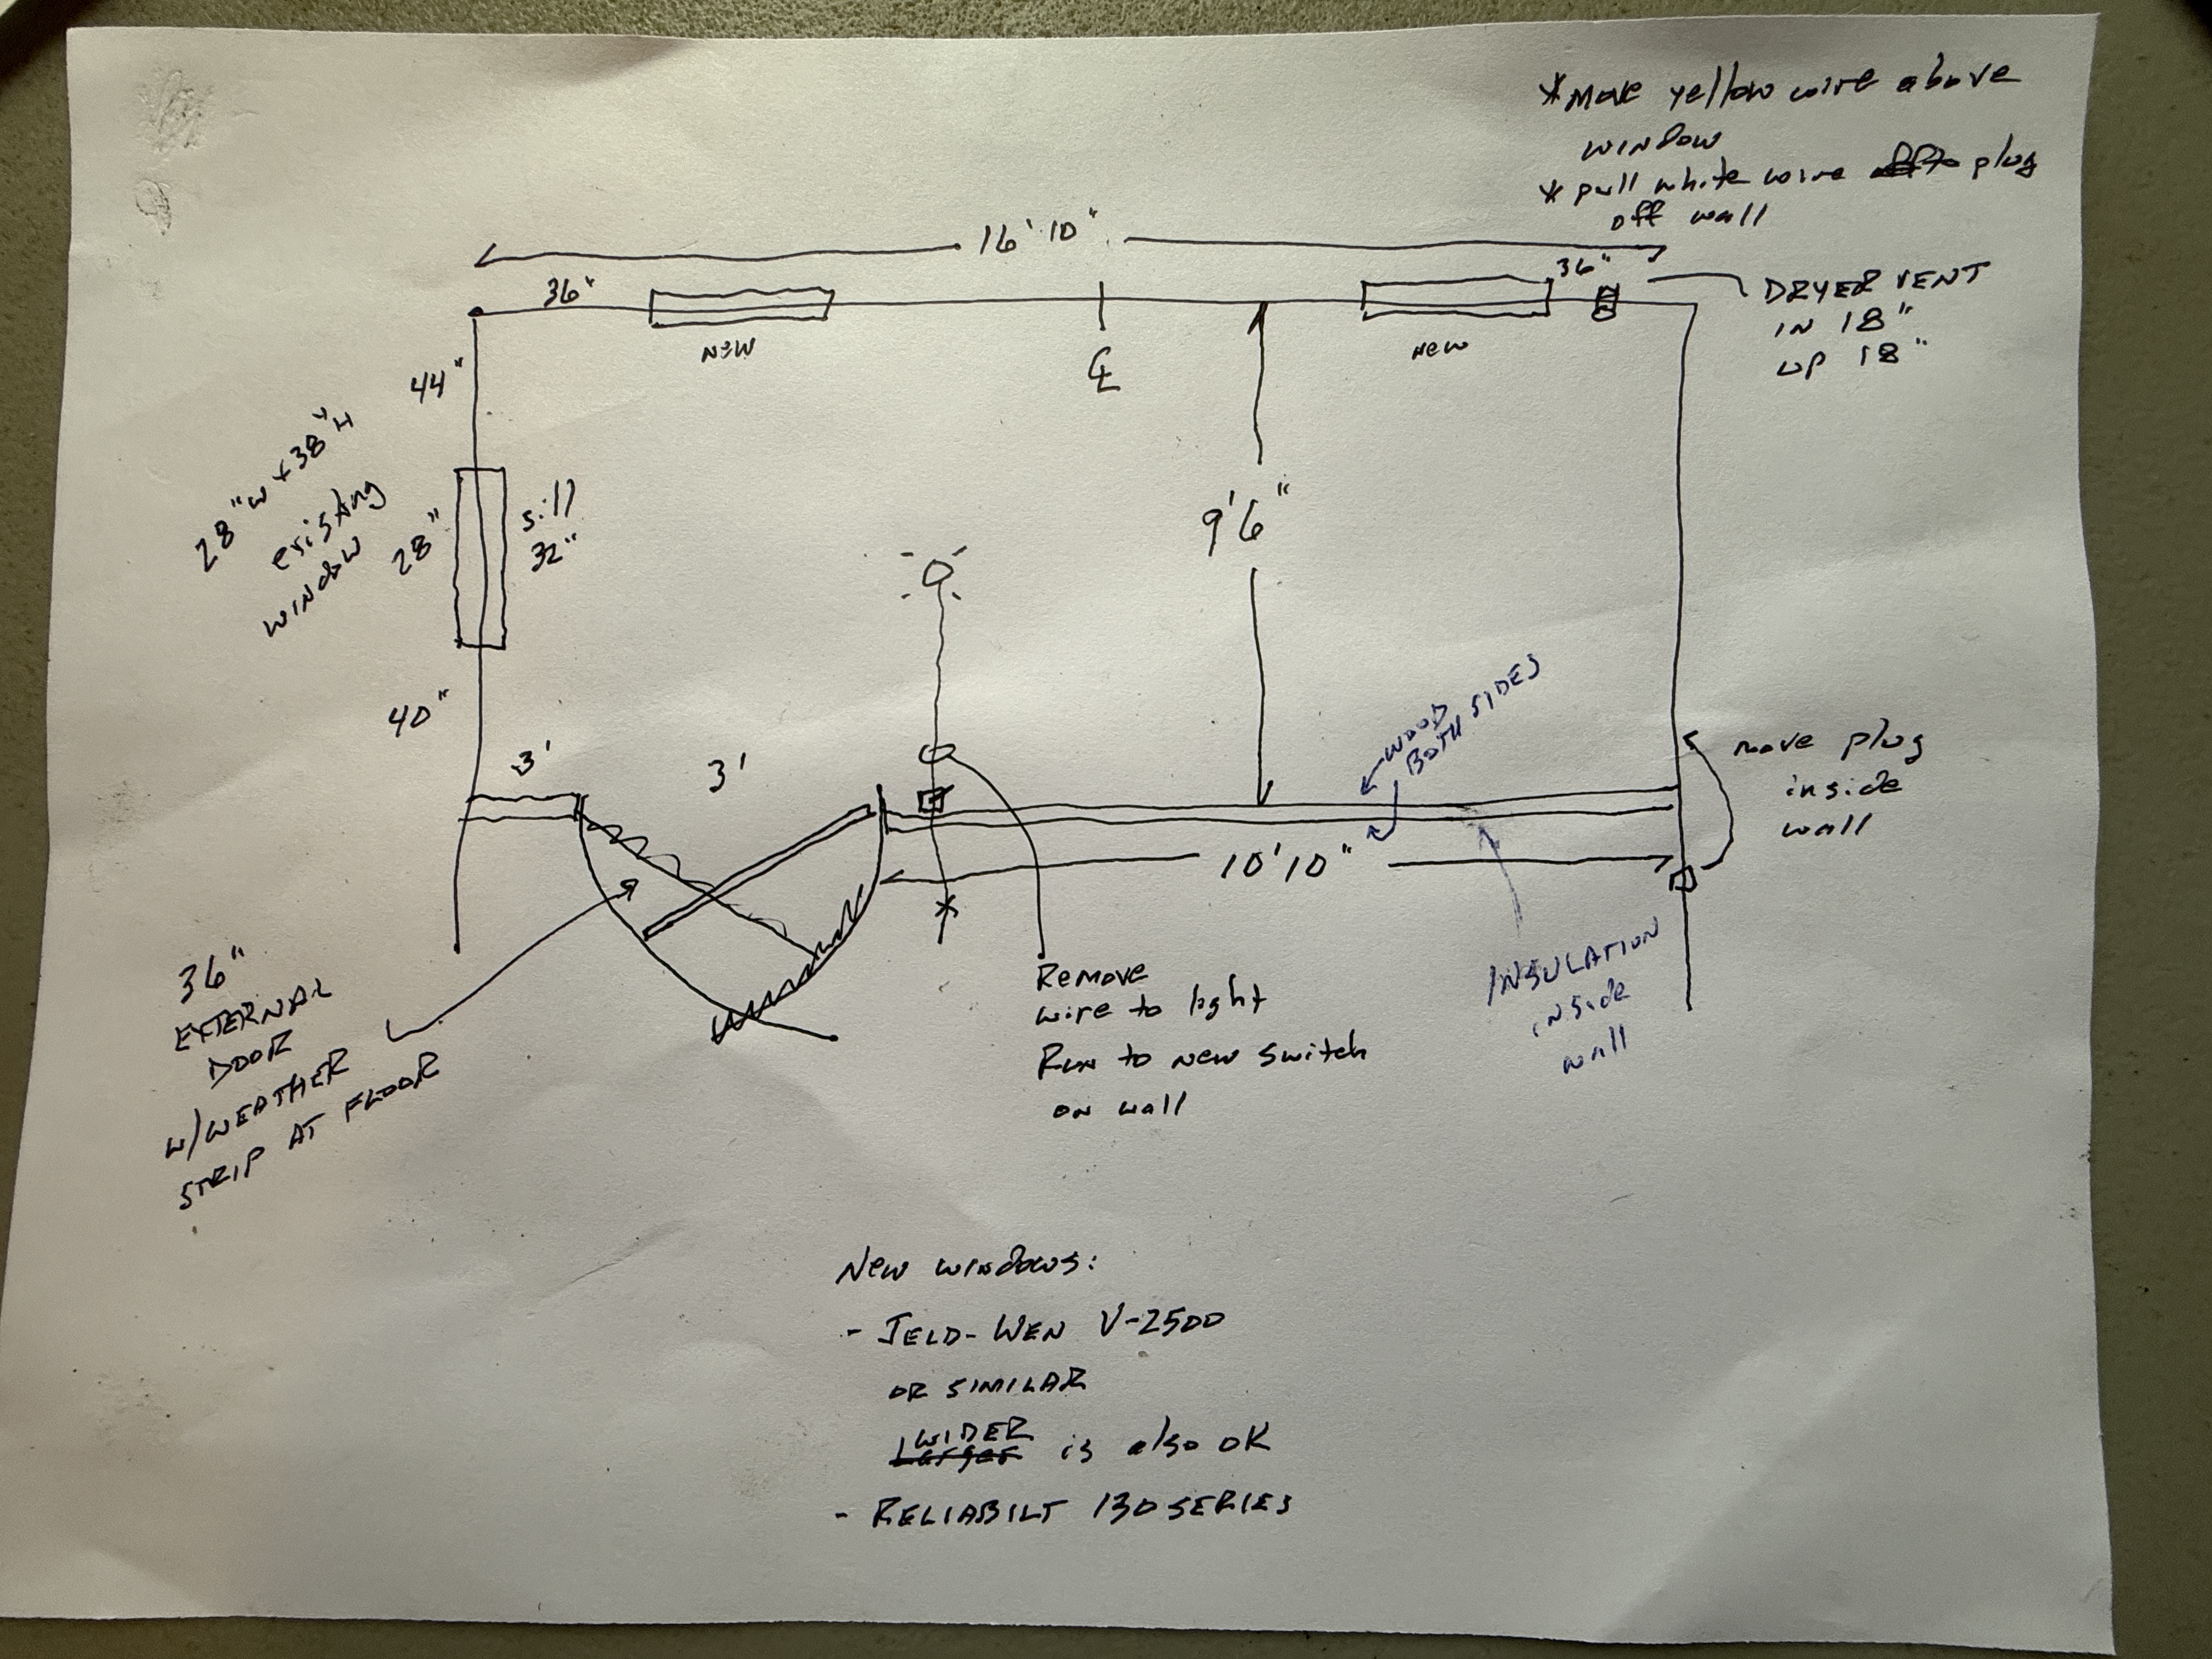 *Move yellow wire above
window
* pull white wire plug
off wall
16' 10"
36"
36"
DRYER VENT
IN 18"
UP 18"
NEW
CL
NEW
44"
28"W x 38"H
existing
window
28"
sill
32"
9'6"
40"
3'
3'
WOOD
BOTH SIDES
move plug
inside
wall
10'10"
36"
EXTERNAL
DOOR
W/WEATHER
STRIP AT FLOOR
Remove
wire to light
Run to new switch
on wall
INSULATION
inside
wall
New windows:
- JELD-WEN V-2500
OR SIMILAR
WIDER
Larger is also OK
- RELIABILT 130 SERIES